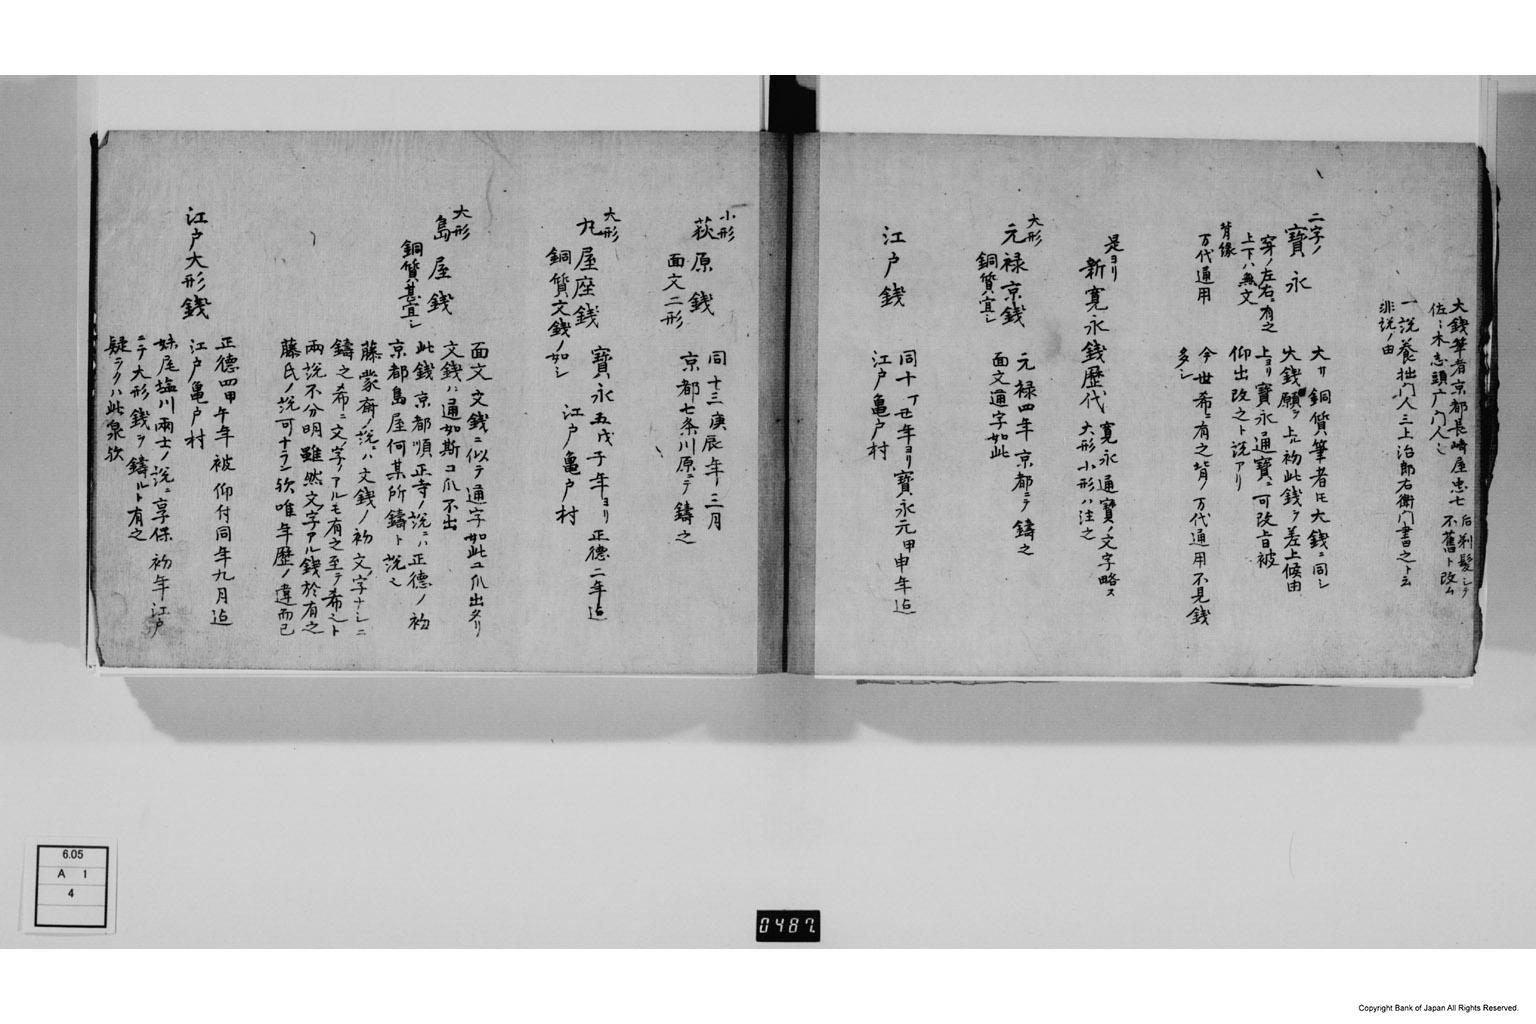 大銭筆者京都長崎屋忠七 后剃髪シテ不舊ト改ム
佐々木志頭广門人也
一説養拙門人三上治郎右衛門書之ト云
非説ノ由
二字ノ
寳永
穿ノ左右ニ有之
上下ハ無文
背縁
万代通用
大サ銅質筆者ﾋ大銭ニ同シ
大銭願ヲ上ル初此銭ヲ差上候由
上ヨリ寳永通寳ニ可改旨被
仰出改之ト説アリ
今世希ニ有之背ノ万代通用不見銭
多シ
是ヨリ
新寛永銭歴代
寛永通寳ノ文字略ス
大形小形ハ注之
大形
元禄京銭
銅質宜シ
元禄四年京都ニテ鑄之
面文通字如此
江戸銭
同十丁丑年ヨリ寳永元甲申年迠
江戸亀戸村
小形
荻原銭
面文二形
同十三庚辰年三月
京都七条川原ニテ鑄之
大形
九屋座銭
銅質文銭ノ如シ
寳永五戊子年ヨリ正徳二年迠
江戸亀戸村
大形
島屋銭
銅質甚宜シ
面文文銭ニ似テ通字如此コ爪出タリ
文銭ハ通如斯コ爪不出
此銭京都順正寺ノ説ニハ正徳ノ初
京都島屋何某所鑄ト説也
藤蒙斎ノ説ニハ文銭ノ初文ノ字ナシニ
鑄之希ニ文字アルモ有之至テ希也ト
兩説不分明雖然文字アル銭於有之
藤氏ノ説可ナラン欤唯年歴ノ違而已
江戸大形銭
正徳四甲午年被仰付同年九月迠
江戸亀戸村
妹尾塩川兩士ノ説ニ享保初年江戸
ニテ大形銭ヲ鑄ルト有之
疑ラクハ此泉欤
6.05
A 1
4
0487.
Copyright Bank of Japan All Rights Reserved.